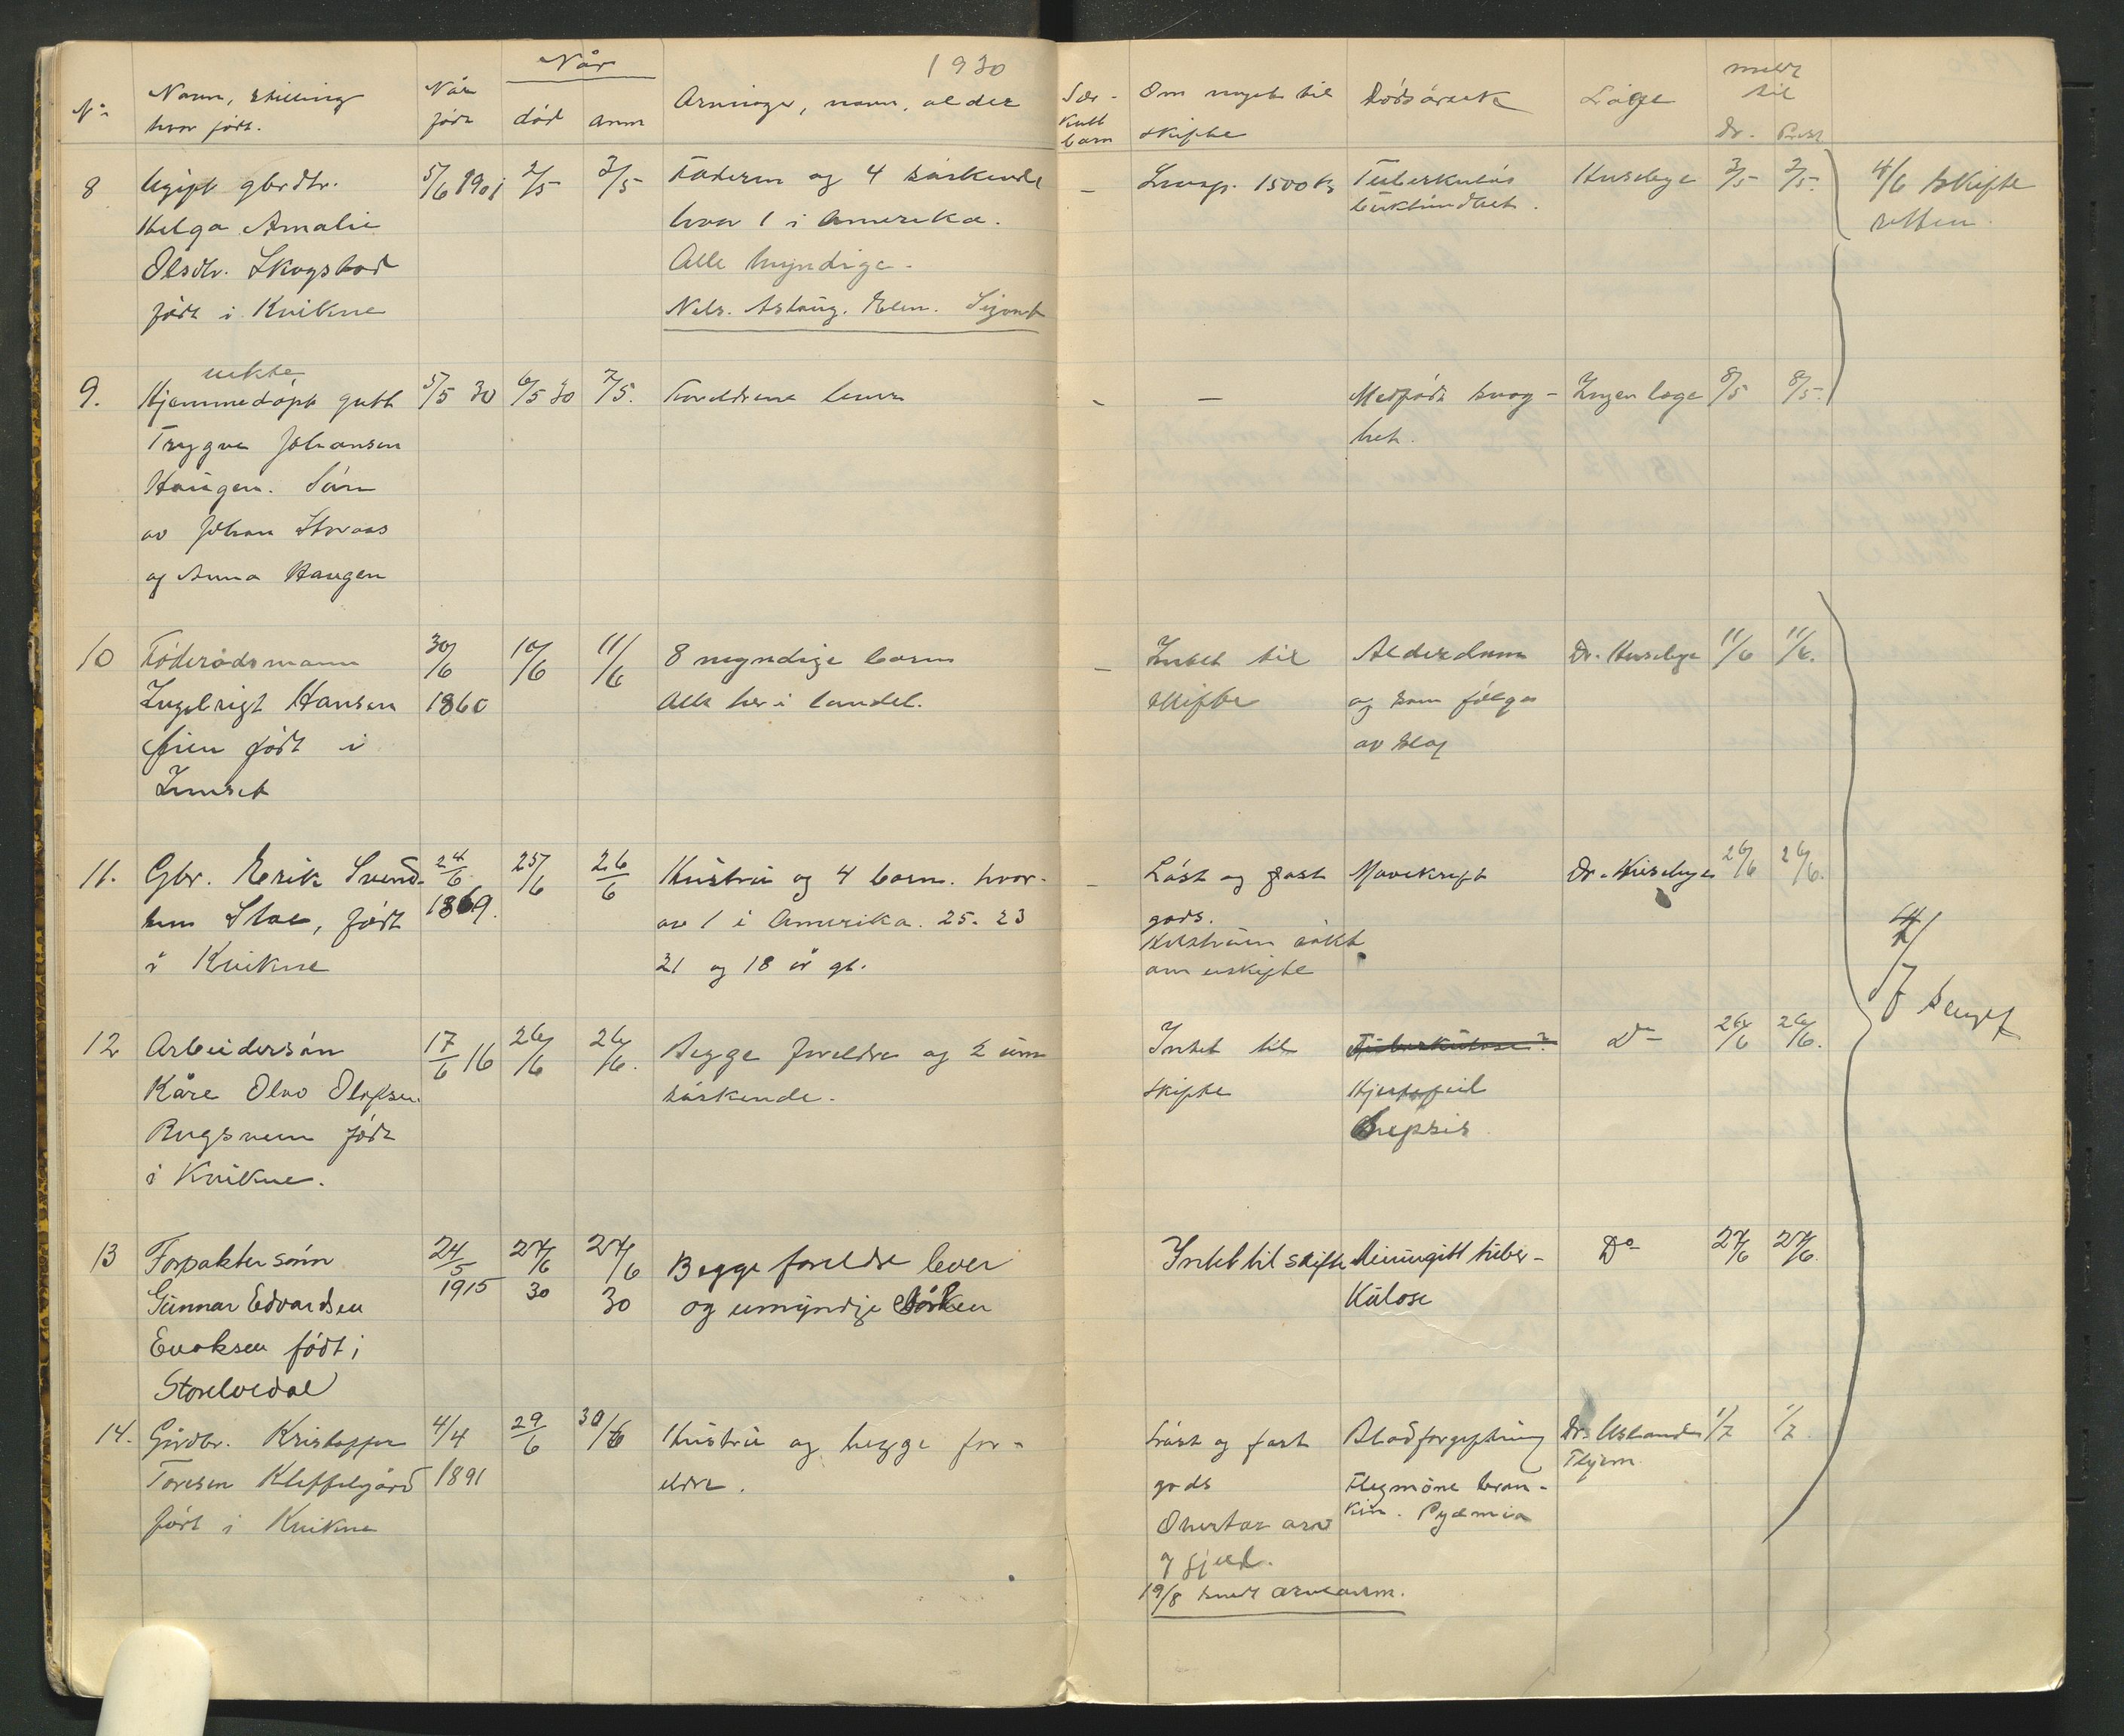 1930
No Navn, stilling hvor født. Når født Når død anm Arvinger, navn, alder Sær-kull barn Om noget til skifte Dødsårsak Læge meldt til Dr. Prest
8 Ugift gbrdtr. 5/6 1901 2/5 3/5 Faderen og 4 søskende – Innsp. 1500 kr Tuberkuløs Husebye 3/5 3/5. 4/6 skifte
Helga Amalie hvor 1 i Amerika. retten
Olsdtr. Skogstad Alle myndige.
født i Kvikne Nils. Aslaug. Elen. Sigurd
uekte
9. Hjemmedøpt gutt 5/5 30 6/5 30 7/5. Foreldrene lever – – Medfødt svag- Ingen læge 8/5 8/5.
Trygve Johansen het.
Haugen. Sønn
av Johan
og Anna Haugen
10 Føderådsmann 30/6 10/6 11/6 8 myndige barn – Intet til Alderdom Dr. Husebye 11/6 11/6.
Ingebrigt Hansen 1860 Alle her i landet. skifte og som følge
født i av slag
Innset
11. Gbr. Erik Svend- 24/6 25/6 26/6 Hustru og 4 barn. hvor- – Løst og fast Mavekreft Dr. Husebye 26/6 26/6.
sen Stae, født 1869. av 1 i Amerika. 25. 23 gods.
i Kvikne 21 og 18 år gl. Hustruen søkt
om uskifte
4/7 sengt
12 Arbeidersøn 17/6 16 26/6 26/6. Begge foreldre og 2 um Intet til Tuberkulose? Do 26/6 26/6.
Kåre Olav Olafsen søskende. skifte Hjertefeil
født Sepsis.
i Kvikne.
13 Forpaktersønn 24/5 27/6 27/6 Begge foreldre lever Intet til skifte Meningitt tuber- Do 27/6 27/6.
Gunnar Edvardsen 1915 30 30 og umyndige søsken kulose
Enoksen født i
Storelvedal
14. Gårdbr. Kristoffer 4/4 29/6 30/6 Hustru og begge for- Løst og fast Blodforgiftning Dr. 1/7 1/7.
Toresen Kleffelgård 1891 eldre. gods Flegmone
født i Kvikne Overtar arv Pyæmia
og gjæld.
19/8 sendt arveanm.